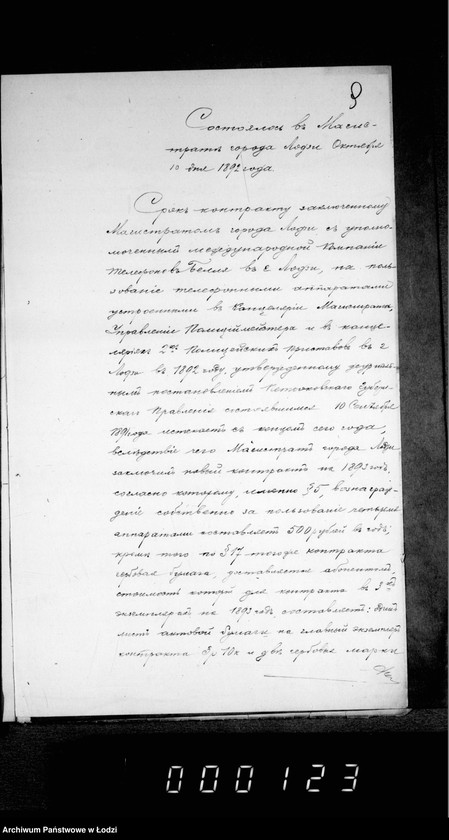 9
Состоялось въ Магис-
тратѣ города Лодзи Октября
10 дня 1892 года
Срокъ контракту заключенному
Магистратомъ города Лодзи съ уполно-
моченнымъ международной Компаніи
Телефоновъ Белля въ г. Лодзи, на поль-
зованіе телефонными аппаратами
устроенными въ Канцеляріи Магистрата,
Управленіе Полиціймейстера и въ канце-
ляріяхъ 2хъ Полицейскихъ приставовъ въ г.
Лодзи въ 1892 году, утвержденному журналь-
нымъ постановленіемъ Петроковскаго Губерн-
скаго Правленія состоявшимся 10 Сентября
1891 года истекаетъ съ концомъ сего года,
вслѣдствіе чего Магистратъ города Лодзи
заключилъ новый контрактъ на 1893 годъ,
согласно которому, именно §5, вознаграж-
деніе собственно за пользованіе четырьмя
аппаратами составляетъ 500 рублей въ годъ;
кромѣ того по §17 того же контракта
гербовая бумага, доставляется абонентомъ
стоимость которой для контракта въ 3хъ
экземплярахъ на 1893 годъ, составляетъ:
листъ актовой бумаги на главный экземпляръ
контракта 3 р 10 к и двѣ гербовые марки
000123
Archiwum Państwowe w Łodzi